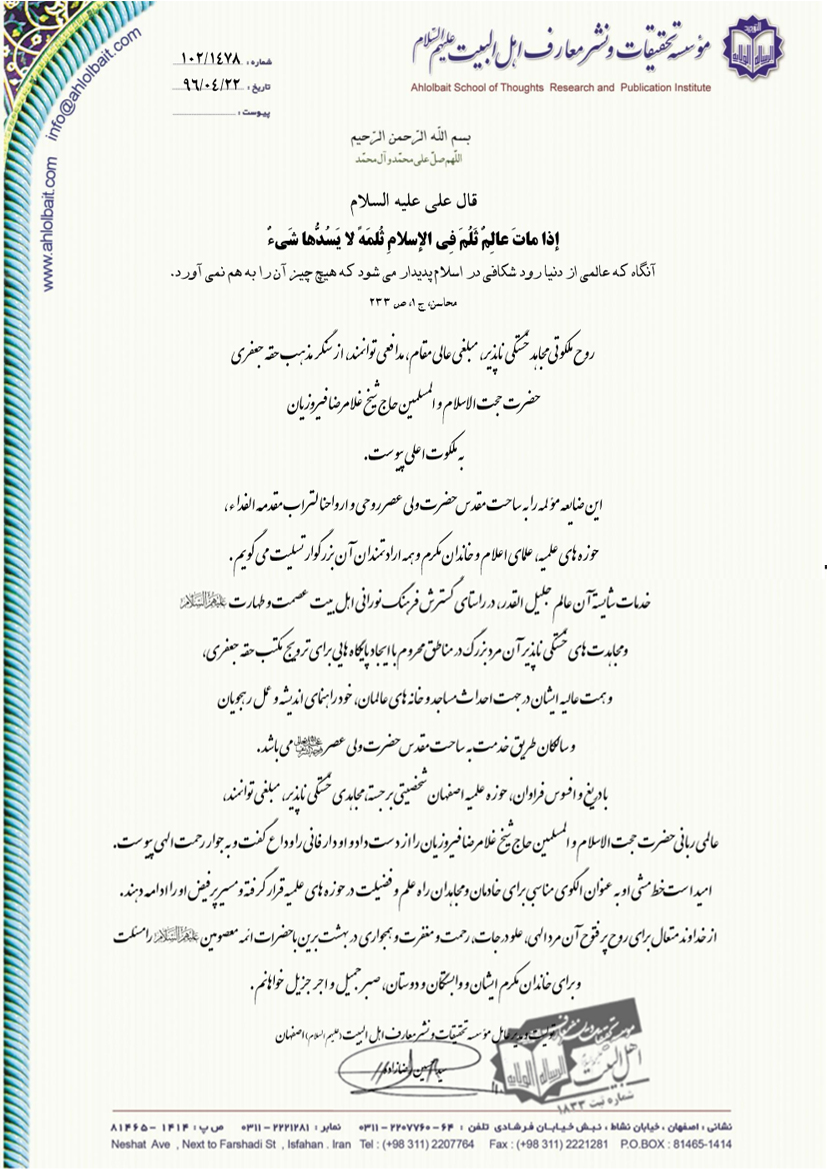 مؤسسه تحقیقات و نشر معارف اهل البیت علیهم السلام
Ahlolbait School of Thoughts Research and Publication Institute
شماره : ۱۰۲/۱۴۷۸
تاریخ : ۹۶/۰۴/۲۲
پیوست :
info@ahlolbait.com
www.ahlolbait.com
بسم الله الرّحمن الرّحیم
اللّهم صلّ علی محمّد و آل محمّد
قال علی علیه السلام
إذا ماتَ عالِمٌ ثَلُمَ فِی الإسلامِ ثُلمَهً لا یَسُدُّها شَیءٌ
آنگاه که عالمی از دنیا رود شکافی در اسلام پدیدار می شود که هیچ چیز آن را به هم نمی آورد.
محاسن، ج ۱، ص ۲۳۳
روح ملکوتی مجاهد خستگی ناپذیر، مبلغی عالی مقام، مدافعی توانمند، از سنگر مذهب حقه جعفری
حضرت حجت الاسلام و المسلمین حاج شیخ غلامرضا فیروزیان
به ملکوت اعلی پیوست.
این ضایعه مؤلمه را به ساحت مقدس حضرت ولی عصر روحی و ارواحنا لتراب مقدمه الفداء،
حوزه های علمیه، علمای اعلام و خاندان مکرم و همه ارادتمندان آن بزرگوار تسلیت می گویم.
خدمات شایسته آن عالم جلیل القدر، در راستای گسترش فرهنگ نورانی اهل بیت عصمت و طهارت علیهم السلام
و مجاهدت های خستگی ناپذیر آن مرد بزرگ در مناطق محروم با ایجاد پایگاه هایی برای ترویج مکتب حقه جعفری،
و همت عالیه ایشان در جهت احداث مساجد و خانه های عالمان، خود راهنمای اندیشه و عمل رهجویان
و سالکان طریق خدمت به ساحت مقدس حضرت ولی عصر می باشد.
با دریغ و افسوس فراوان، حوزه علمیه اصفهان شخصیتی برجسته، مجاهدی خستگی ناپذیر، مبلغی توانمند،
عالمی ربانی حضرت حجت الاسلام و المسلمین حاج شیخ غلامرضا فیروزیان را از دست داد و او دار فانی را وداع گفت و به جوار رحمت الهی پیوست.
امید است خط مشی او به عنوان الگوی مناسبی برای خادمان و مجاهدان راه علم و فضیلت در حوزه های علمیه قرار گرفته و مسیر پر فیض او را ادامه دهند.
از خداوند متعال برای روح پر فتوح آن مرد الهی، علو درجات، رحمت و مغفرت و همجواری در بهشت برین با حضرات ائمه معصومین علیهم السلام را مسئلت
و برای خاندان مکرم ایشان و وابستگان و دوستان، صبر جمیل و اجر جزیل خواهانم.
تولیت و مدیر عامل مؤسسه تحقیقات و نشر معارف اهل البیت (علیهم السلام) اصفهان
سید حسین رضازاده
اهل البیت
شماره ثبت ۱۸۳۳
نشانی : اصفهان ، خیابان نشاط ، نبش خیابان فرشادی تلفن : ۶۴-۲۲۰۷۷۶۰-۰۳۱۱ نمابر : ۲۲۲۱۲۸۱-۰۳۱۱ ص پ : ۱۴۱۴-۸۱۴۶۵
Neshat Ave , Next to Farshadi St , Isfahan . Iran Tel : (+98 311) 2207764 Fax : (+98 311) 2221281 P.O.BOX : 81465-1414